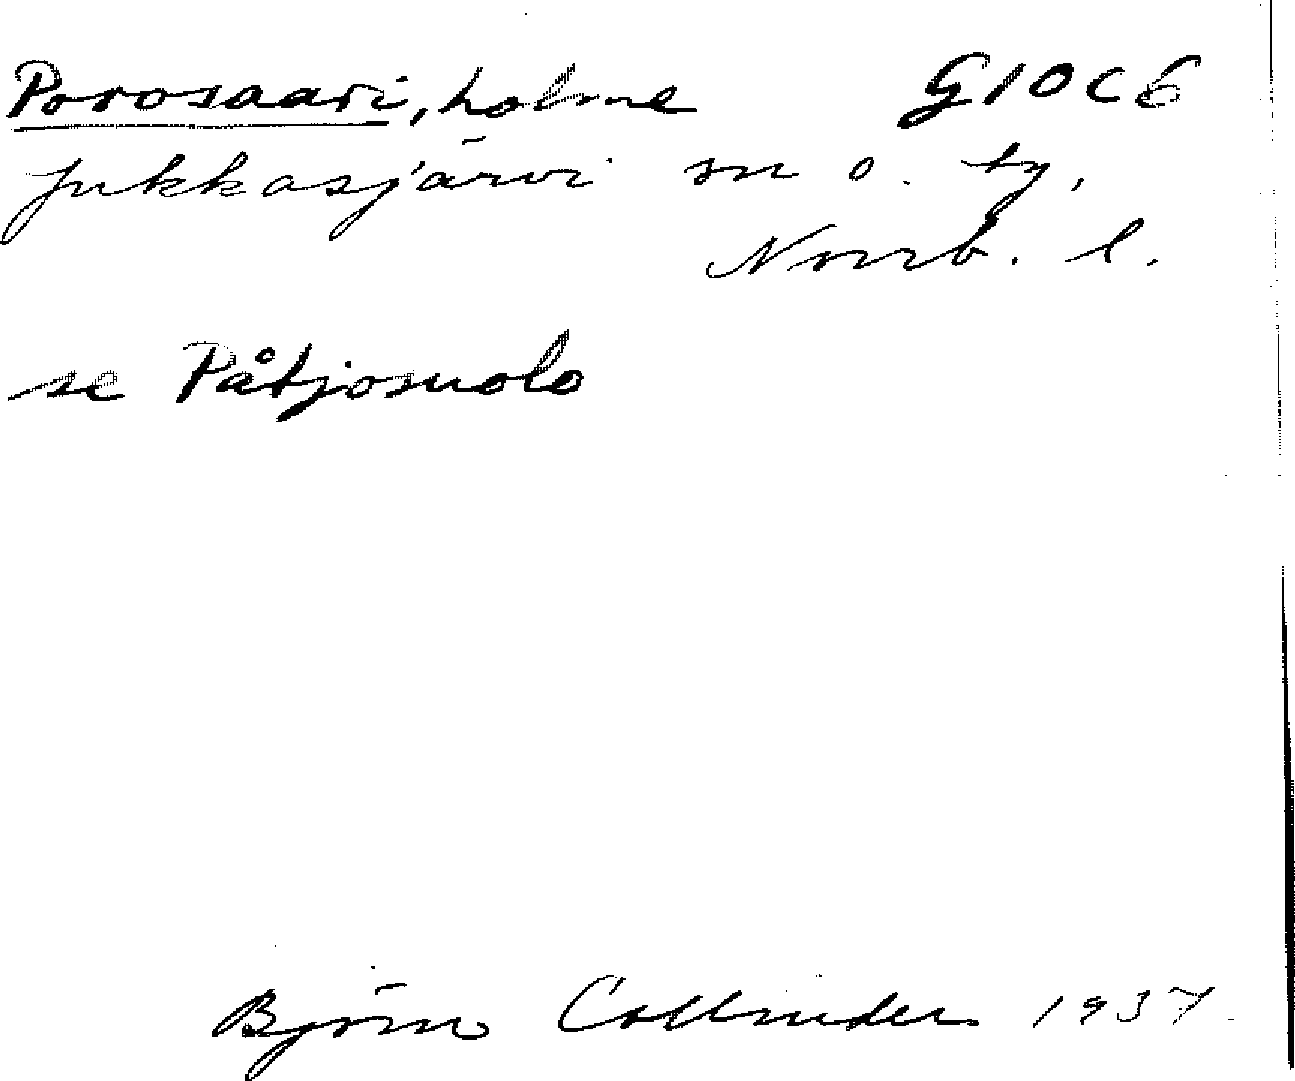 Porosaari, holme G10C6
Jukkasjärvi sn o. tg,
Norrb. l.
se Påtjosuolo
Björn Collinder 1937